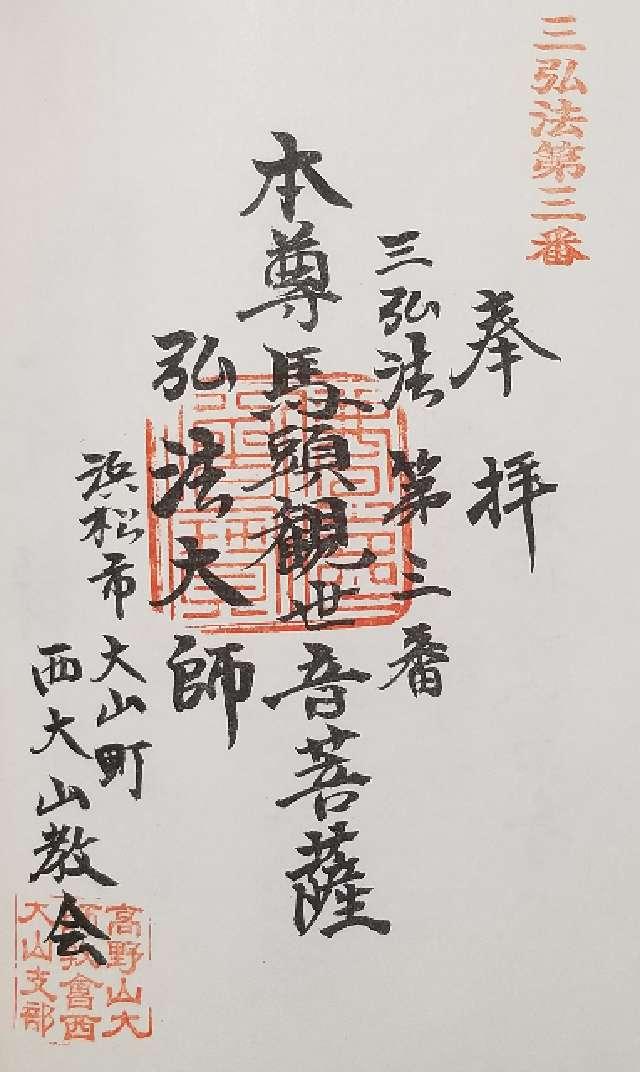 三弘法第三番
奉拝
三弘法 第三番
本尊馬頭観世音菩薩
弘法大師
浜松市 大山町
西大山教会
高野山大
師教會西
大山支部